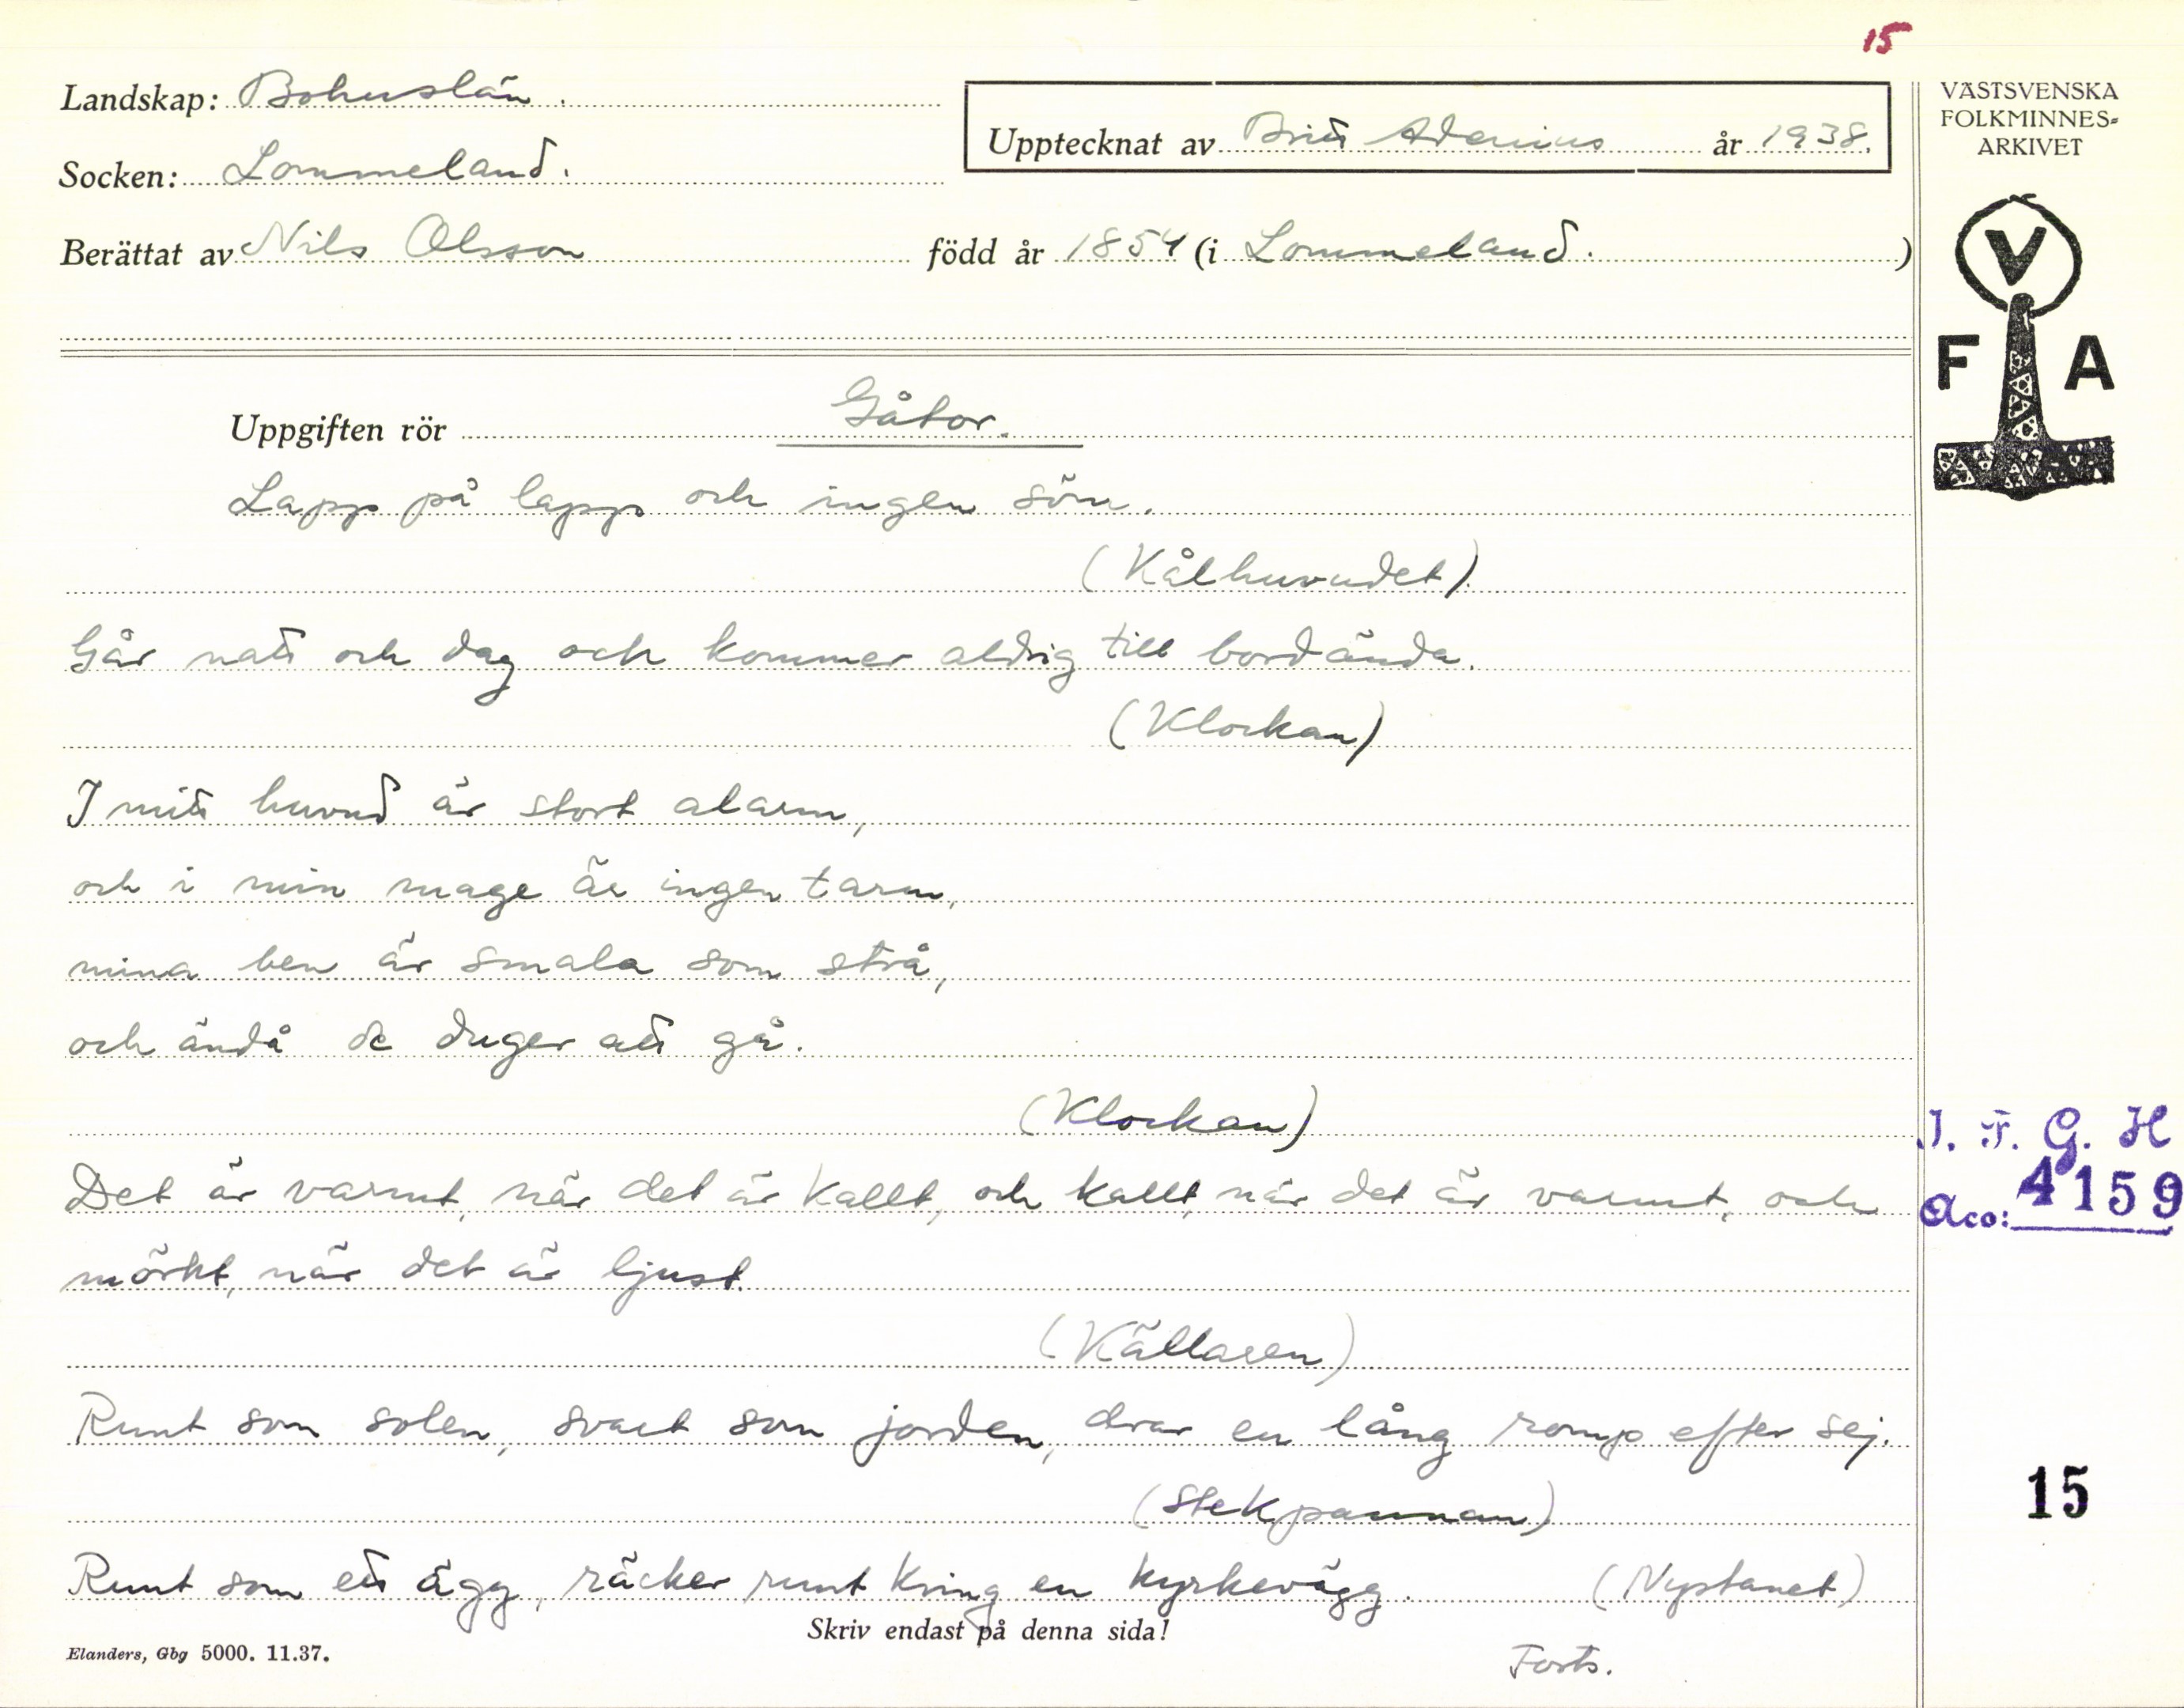 15
Landskap: Bohuslän.
Upptecknat av Britt Adenius år 1938.
Socken: Lommeland.
Berättat av Nils Olsson född år 1854 (i Lommeland.)
VÄSTSVENSKA
FOLKMINNES-
ARKIVET
V
F A
Uppgiften rör Gåtor.
Lapp på lapp och ingen söm.
(Kålhuvudet)
Går natt och dag och kommer aldrig till bordända.
(Klockan)
I mitt huvud är stort alarm,
och i min mage är ingen tarm,
mina ben är smala som strå,
och ändå de duger att gå.
(Klockan)
Det är varmt, när det är kallt, och kallt, när det är varmt, och
mörkt, när det är ljust.
(Källaren)
Runt som solen, svart som jorden, drar en lång romp efter sej.
(Stekpannan)
Runt som ett ägg, räcker runt kring en kyrkevägg. (Nystanet)
Skriv endast på denna sida!
Elanders, Gbg 5000. 11.37.
Forts.
I. F. G. H
Acc: 4159
15